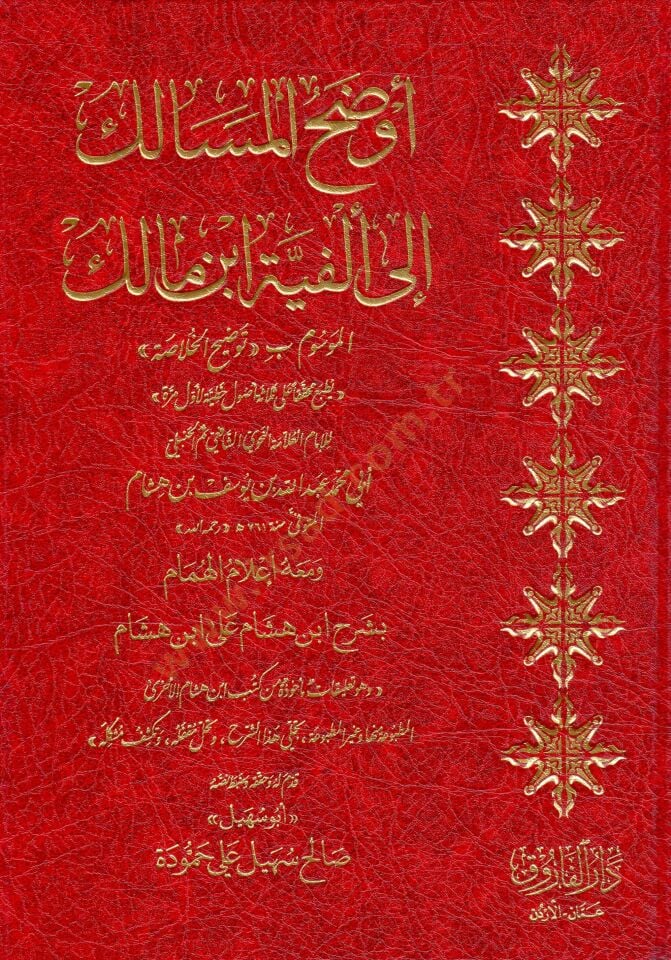 أوضح المسالك
إلى ألفية ابن مالك
الموسوم بـ «توضيح الخلاصة»
«يطبع محققًا على ثلاثة أصول خطية لأول مرة»
للإمام العلامة النحوي الشافعي ثم الحنبلي
أبي محمد عبد الله بن يوسف بن هشام
المتوفى سنة ٧٦١ هـ «رحمه الله»
ومعه إعلام الهمام
بشرح ابن هشام على ابن هشام
«وهو تعليقات مأخوذة من كتب ابن هشام الأخرى
المطبوعة منها وغير المطبوعة، تجلي هذا الشرح، وتحل مقفله، وتكشف مشكله»
قدم له وحققه وضبط نصه
«أبو سهيل»
صالح سهيل علي حمودة
دار الفاروق
عمان - الأردن